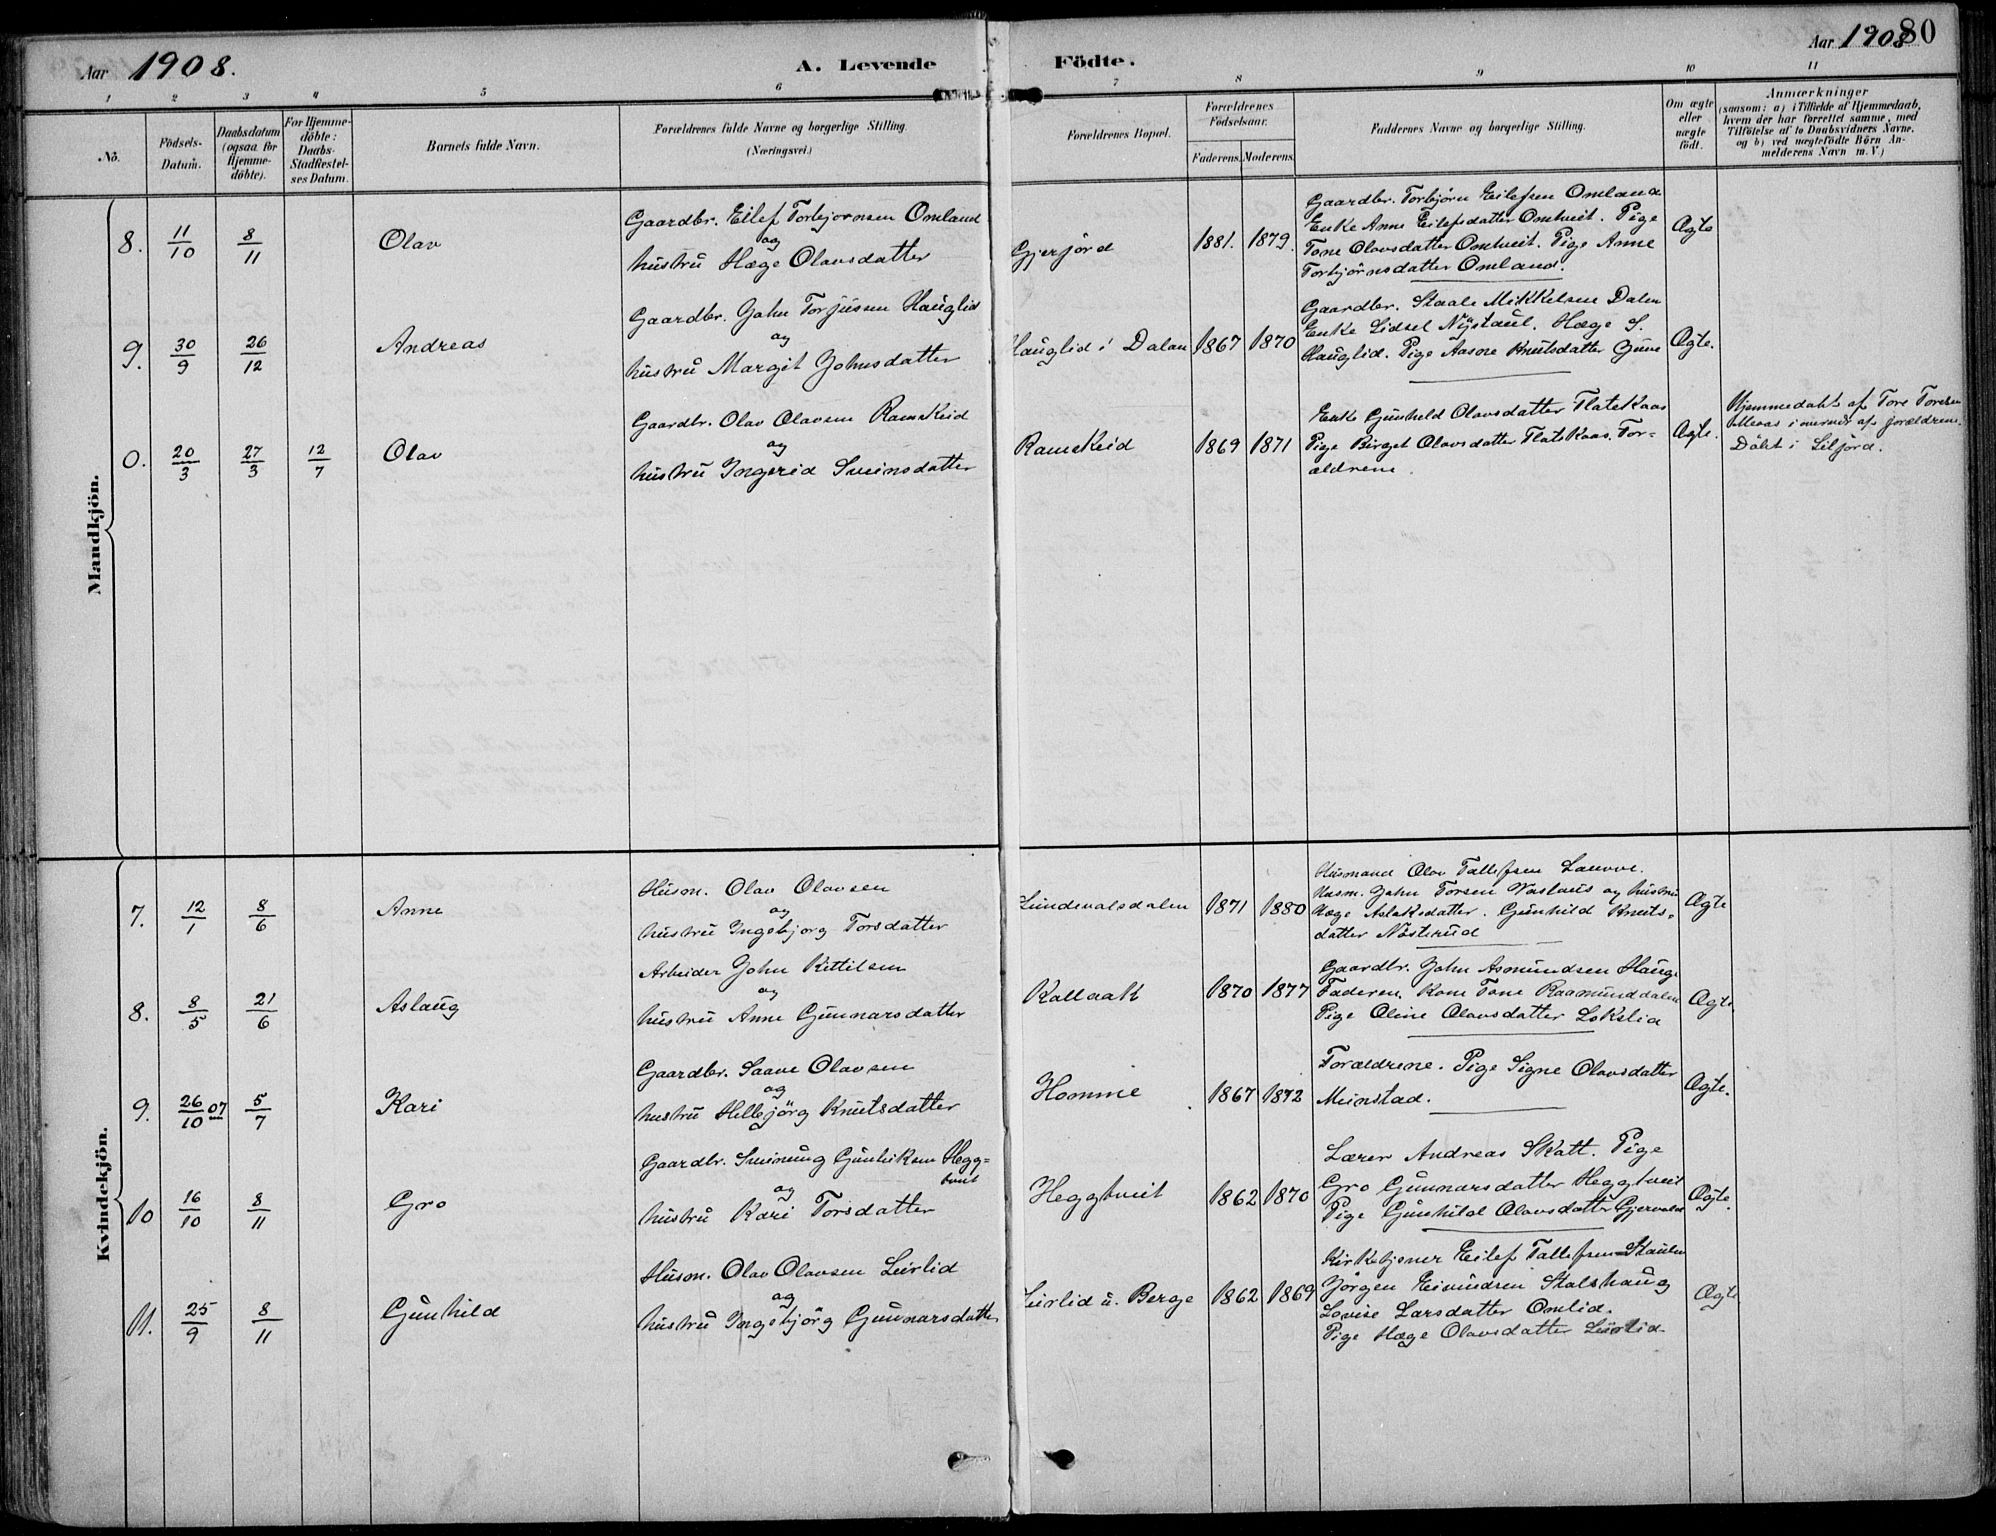 Aar 1908.
A. Levende Födte.
Aar 1908
80
1 2 3 4 5 6 7 8 9 10 11
No.
Födsels-Datum.
Daabsdatum (ogsaa for Hjemmedöbte).
For Hjemmedöbte: Daabs-Stadfestelses Datum.
Barnets fulde Navn.
Forældrenes fulde Navne og borgerlige Stilling.
(Næringsvei.)
Forældrenes Bopæl.
Forældrenes Födselsaar.
Faderens. Moderens.
Faddernes Navne og borgerlige Stilling.
Om ægte eller uægte födt.
Anmærkninger
(saasom: a) i Tilfælde af Hjemmedaab, hvem der har forrettet samme, med Tilföielse af to Daabsvidners Navne, og b) ved uægtefödte Börn Anmelderens Navn m. V.)
Mandkjön.
8. 11/10 8/11 Olav
Gaardbr. Eilef Torbjørnsen Omland
og
hustru Hæge Olavsdatter
Gjerjörd 1881. 1879.
Gaardbr. Torbjørn Eilefsen Omland
Enke Anne Eilefsdatter Omtveit. Pige
Tone Olavsdatter Omtveit. Pige Anne
Torbjörnsdatter Omland.
Ægte
9. 30/9 26/12 Andreas
Gaardbr. John Torjussen Hauglid
og
hustru Margit Johnsdatter
Hauglid i Dalen 1867 1870
Gaardbr. Staale Mikkelsen Dalen
Enke Lidsel Nystaul. Hæge S.
Hauglid. Pige Aasne Knutsdatter
Ægte.
0. 20/3 27/3 12/7 Olav
Gaardbr. Olav Olavsen Ramskeid
og
hustru Ingerid Sveinsdatter
Ramskeid 1869 1871
Enke Gunhild Olavsdatter Flatekaas
Pige Birget Olavsdatter Flatekaas. For-
ældrene.
Ægte.
Hjemmedøbt af Tore Toresen
i nærvær af forældrene.
Döbt i
Kvindekjön.
7. 12/1 8/6 Anne
Husm. Olav Olavsen
og
hustru Ingebjorg Torsdatter
1871 1880
Husmand Olav Tallefsen
Husm. John Torsen og hustru
Hæge Aslaksdatter. Gunhild Knuts-
datter Nösterud
Ægte
8. 8/5 21/6 Aslaug
Arbeider John Kittilsen
og
hustru Anne Gunnarsdatter
1870 1877
Gaardbr. John Asmundsen Hauge
Faderen. Kone Tone Raamunddalen
Pige Oline Olavsdatter Lokslia
Ægte.
9. 26/10 07 5/7 Kari
Gaardbr. Saave Olavsen
og
hustru Hellejörg Knutsdatter
Homme 1867 1872
Forældrene. Pige Signe Olavsdatter
Meinstad.
Ægte.
10 16/10 8/11 Gro
Gaardbr. Sveinung Gunleiksen Hegg-
tveit
og
hustru Kari Torsdatter
Heggtveit 1862 1870
Lærer Andreas Skatt. Pige
Gro Gunnarsdatter Heggtveit
Pige Gunhild Olavsdatter
Ægte.
11. 25/9 8/11 Gunhild
Husm. Olav Olavsen Leirlid
og
hustru Ingebjörg Gunnarsdatter
Leirlid u. Berge 1862 1869
Kirketjener Eilef Tallefsen Staulen
Jörgen Eivindsen Stalshaug
Lovise Larsdatter Omlid.
Pige Hæge Olavsdatter Leirlid
Ægte